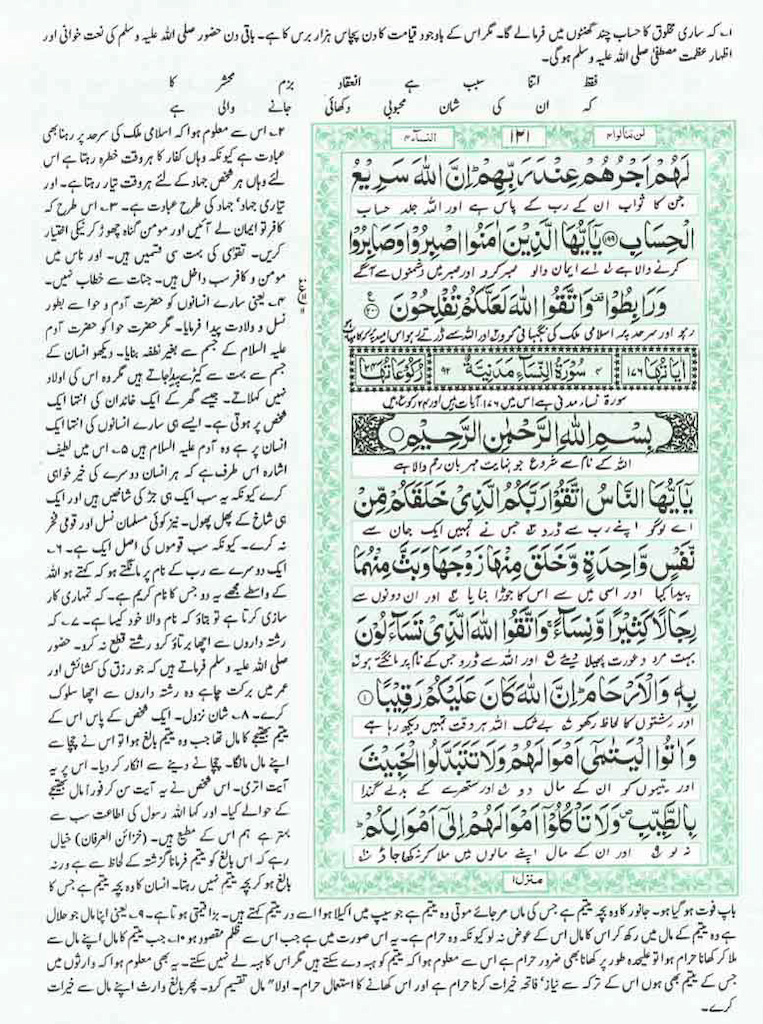 ۱؎ کہ ساری مخلوق کا حساب چند گھنٹوں میں فرمالے گا۔ مگر اس کے باوجود قیامت کا دن پچاس ہزار برس کا ہے۔ باقی دن حضور صلی اللہ علیہ وسلم کی نعت خوانی اور
اظہار عظمت مصطفیٰ صلی اللہ علیہ وسلم ہو گی۔
فقط اتنا سبب ہے انعقاد بزم محشر کا
کہ ان کی شان محبوبی دکھائی جانے والی ہے
لن تنالوا۴ ۱۲۱ النساء۴
لَهُمْ اَجْرُهُمْ عِنْدَ رَبِّهِمْ اِنَّ اللّٰهَ سَرِيْعُ
جن کا ثواب ان کے رب کے پاس ہے اور اللہ جلد حساب
الْحِسَابِ ۱۹۹ يٰۤاَيُّهَا الَّذِيْنَ اٰمَنُوا اصْبِرُوْا وَصَابِرُوْا
کرنے والا ہے اے ایمان والو صبر کرو اور صبر میں دشمنوں سے آگے
وَرَابِطُوْا وَاتَّقُوا اللّٰهَ لَعَلَّكُمْ تُفْلِحُوْنَ ۲۰۰
رہو اور سرحد پر اسلامی ملک کی نگہبانی کرو اور اللہ سے ڈرتے رہو اس امید پر کہ کامیاب ہو
اٰيَاتُهَا ۱۷۶ ۴ سُوْرَةُ النِّسَآءِ مَدَنِيَّةٌ ۹۲ رُكُوْعَاتُهَا ۲۴
سورۃ نساء مدنی ہے اس میں ۱۷۶ آیات ہیں اور ۲۴ رکوع ہیں
بِسْمِ اللّٰهِ الرَّحْمٰنِ الرَّحِيْمِ
اللہ کے نام سے شروع جو نہایت مہربان رحم والا ہے
يٰۤاَيُّهَا النَّاسُ اتَّقُوْا رَبَّكُمُ الَّذِيْ خَلَقَكُمْ مِّنْ
اے لوگو اپنے رب سے ڈرو جس نے تمہیں ایک جان سے
نَّفْسٍ وَّاحِدَةٍ وَّخَلَقَ مِنْهَا زَوْجَهَا وَبَثَّ مِنْهُمَا
پیدا کیا اور اسی میں سے اس کا جوڑا بنایا اور ان دونوں سے
رِجَالًا كَثِيْرًا وَّنِسَآءً وَاتَّقُوا اللّٰهَ الَّذِيْ تَسَآءَلُوْنَ
بہت مرد و عورت پھیلا دیئے اور اللہ سے ڈرو جس کے نام پر مانگتے ہو
بِهٖ وَالْاَرْحَامَ اِنَّ اللّٰهَ كَانَ عَلَيْكُمْ رَقِيْبًا ۱
اور رشتوں کا لحاظ رکھو بے شک اللہ ہر وقت تمہیں دیکھ رہا ہے
وَاٰتُوا الْيَتٰمٰۤى اَمْوَالَهُمْ وَلَا تَتَبَدَّلُوا الْخَبِيْثَ
اور یتیموں کو ان کے مال دو اور ستھرے کے بدلے گندا
بِالطَّيِّبِ وَلَا تَاْكُلُوْۤا اَمْوَالَهُمْ اِلٰۤى اَمْوَالِكُمْ
نہ لو اور ان کے مال اپنے مالوں میں ملا کر نہ کھا جاؤ
منزل۱
۲؎ اس سے معلوم ہوا کہ اسلامی ملک کی سرحد پر رہنا بھی
عبادت ہے کیونکہ وہاں کفار کا ہر وقت خطرہ رہتا ہے اس
لئے وہاں ہر شخص جہاد کے لئے ہر وقت تیار رہتا ہے۔ اور
تیاری جہاد' جہاد کی طرح عبادت ہے۔ ۳؎ اس طرح کہ
کافر تو ایمان لے آئیں اور مومن گناہ چھوڑ کر نیکی اختیار
کریں۔ تقوٰی کی بہت سی قسمیں ہیں۔ اور ناس میں
مومن و کافر سب داخل ہیں۔ جنات سے خطاب نہیں۔
۴؎ یعنی سارے انسانوں کو حضرت آدم و حوا سے بطور
نسل و ولادت پیدا فرمایا۔ مگر حضرت حوا کو حضرت آدم
علیہ السلام کے جسم سے بغیر نطفہ بنایا۔ دیکھو انسان کے
جسم سے بہت سے کیڑے پیدا ہو جاتے ہیں مگر وہ اس کی اولاد
نہیں کہلاتے۔ جیسے گھر کے ایک خاندان کی انتہا ایک
شخص پر ہوتی ہے۔ ایسے ہی سارے انسانوں کی انتہا ایک
انسان پر ہے وہ آدم علیہ السلام ہیں ۵؎ اس میں لطیف
اشارہ اس طرف ہے کہ ہر انسان دوسرے کی خیر خواہی
کرے کیونکہ یہ سب ایک ہی جڑ کی شاخیں ہیں اور ایک
ہی شاخ کے پھل پھول۔ نیز کوئی مسلمان نسل اور قومی فخر
نہ کرے۔ کیونکہ سب قوموں کی اصل ایک ہے۔ ۶؎
ایک دوسرے سے رب کے نام پر مانگتے ہو کہ کہتے ہو اللہ
کے واسطے مجھے یہ دو جس کا نام کریم ہے۔ کہ تمہاری کار
سازی کرتا ہے تو بتاؤ کہ نام والا خود کیسا ہے۔ ۷؎ کہ
رشتہ داروں سے اچھا برتاؤ کرو رشتے قطع نہ کرو۔ حضور
صلی اللہ علیہ وسلم فرماتے ہیں کہ جو رزق کی کشائش اور
عمر میں برکت چاہے وہ رشتہ داروں سے اچھا سلوک
کرے۔ ۸؎ شان نزول۔ ایک شخص کے پاس اس کے
یتیم بھتیجے کا مال تھا جب وہ یتیم بالغ ہوا تو اس نے چچا سے
اپنے مال مانگا۔ چچا نے دینے سے انکار کر دیا۔ اس پر یہ
آیت اتری۔ اس شخص نے یہ آیت سن کر فوراً مال بھتیجے
کے حوالے کیا۔ اور کہا اللہ رسول کی اطاعت سب سے
بہتر ہے ہم اس کے مطیع ہیں۔ (خزائن العرفان) خیال
رہے کہ اس بالغ کو یتیم فرمانا گزشتہ کے لحاظ سے ہے ورنہ
بالغ ہو کر بچہ یتیم نہیں رہتا۔ انسان کا وہ بچہ یتیم ہے جس کا
باپ فوت ہو گیا ہو۔ جانور کا وہ بچہ یتیم ہے جس کی ماں مر جائے موتی وہ یتیم ہے جو سیپ میں اکیلا ہو اسے در یتیم کہتے ہیں۔ بڑا قیمتی ہوتا ہے۔ ۹؎ یعنی اپنا مال جو حلال
ہے وہ یتیم کے مال میں رکھ کر اس کا مال اس کے عوض نہ لو کیونکہ وہ حرام ہے۔ یہ اس صورت میں ہے جب اس سے ظلم مقصود ہو ۱۰؎ جب یتیم کا مال اپنے مال سے
ملا کر کھانا حرام ہوا تو علیحدہ طور پر کھانا بھی ضرور حرام ہے اس سے معلوم ہوا کہ یتیم کو ہبہ دے سکتے ہیں مگر اس کا ہبہ لے نہیں سکتے۔ یہ بھی معلوم ہوا کہ وارثوں میں
جس کے یتیم بھی ہوں اس کے ترکہ سے نیاز' فاتحہ خیرات کرنا حرام ہے اور اس کھانے کا استعمال حرام۔ اولاً مال تقسیم کرو۔ پھر بالغ وارث اپنے مال سے خیرات
کرے۔